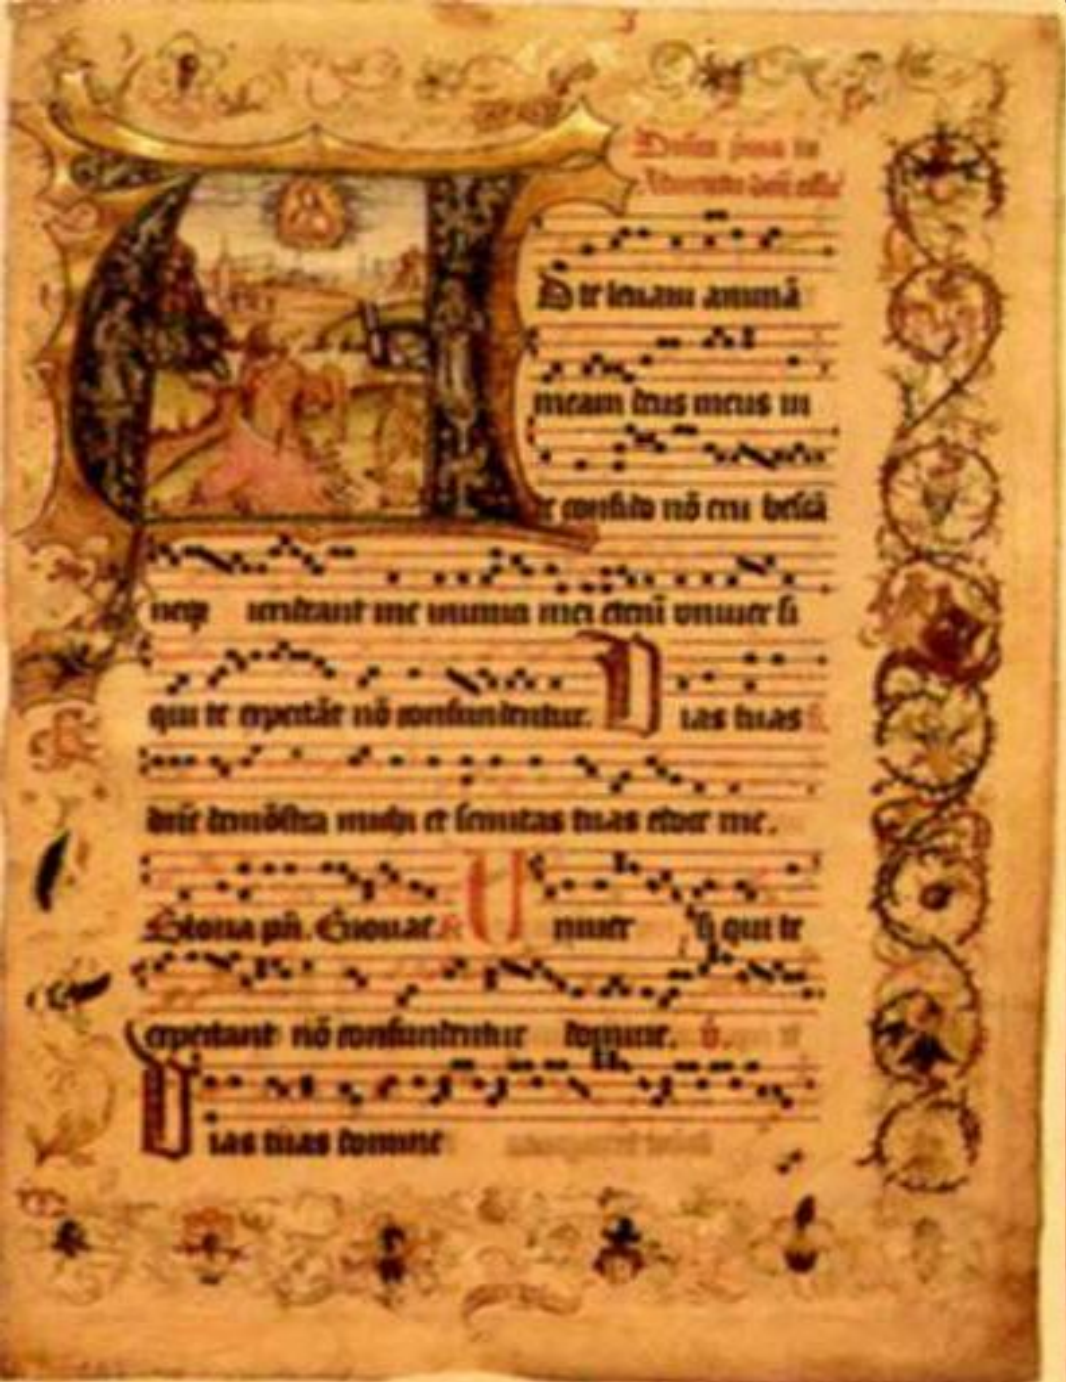 Dn̄ica p̄ma in
Aduentu dn̄i offm̄
Ad te leuaui animā
meam deus meus in
te confido nō eru bescā
neqȝ irrideant me inimici mei eteni vniuer si
qui te expectāt nō confundentur. Vias tuas
dn̄e demōstra michi et semitas tuas edoce me.
Gloria pr̄i. Euouae. Vniuer si qui te
expectant nō confundentur domine. v̄.
Vias tuas domine